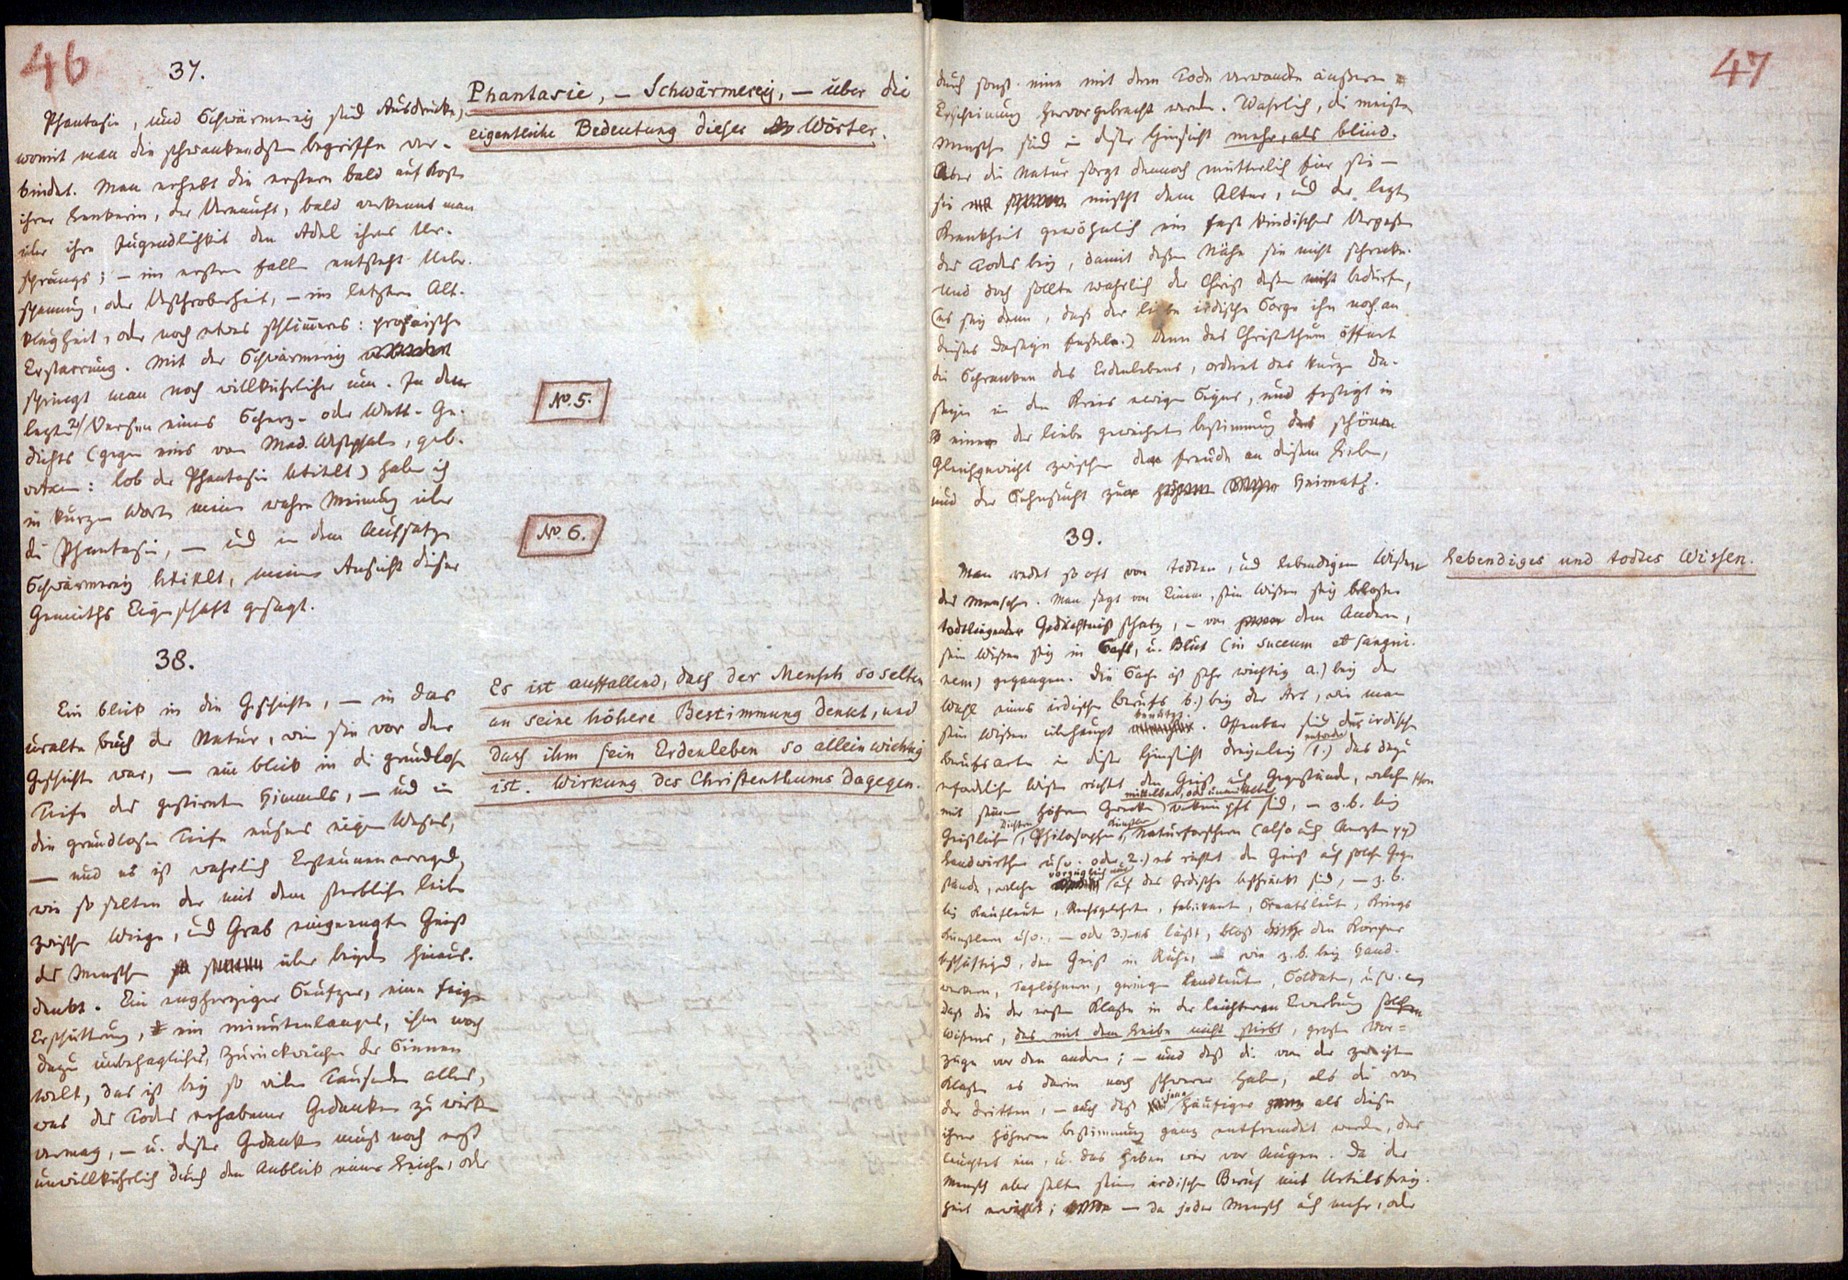 46
37.
Phantasie, — Schwärmerey, — über die
eigentliche Bedeutung dieser Wörter.
Phantasie, und Schwärmerey sind Ausdrücke,
womit man die schwankendsten Begriffe ver-
bindet. Man erhebt die erstere bald auf Kosten
ihrer Lenkerin, der Vernunft, bald verkennt man
über ihre Jugendlichkeit den Adel ihres Ur-
sprungs; — im ersten Fall entsteht Ueber-
spannung, oder Verschrobenheit, — im letztern Alt-
klugheit, oder noch etwas schlimmeres: prosaische
Erstarrung. Mit der Schwärmerey
springt man noch willkührlicher um. In den
letzten Versen eines Scherz- oder Wett-Ge-
dichts (gegen eins von Mad. Westphal, geb.
: Lob der Phantasie betitelt) habe ich
in kurzen Worten meine wahre Meinung über
die Phantasie, — und in dem Aufsatze
Schwärmerey betitelt, meine Ansicht dieser
Gemüths Eigenschaft gesagt.
No. 5.
No. 6.
38.
Es ist auffallend, dass der Mensch so selten
an seine höhere Bestimmung denkt, und
dass ihm sein Erdenleben so allein wichtig
ist. Wirkung des Christenthums dagegen.
Ein Blick in die Geschichte, — in das
uralte Buch der Natur, wie sie vor der
Geschichte war, — ein Blick in die grundlose
Tiefe des gestirnten Himmels, — und in
die grundlose Tiefe unsers eigenen Wesens,
— und es ist wahrlich Erstaunen erregend,
wie so selten der mit dem sterblichen Leibe
zwischen Wiege, und Grab eingeengte Geist
des Menschen über beyde hinaus-
denkt. Ein engherziger Seufzer, eine feige
Erschütterung, ein minutenlanges, ihm noch
dazu unbehagliches, Zurückweichen der Sinnen
welt, das ist bey so vielen Tausenden alles,
was des Todes erhabener Gedanke zu wirken
vermag, — u. dieser Gedanke muß noch erst
unwillkührlich durch den Anblick einer Leiche, oder
47
durch sonst eine mit dem Tode verwandte äußere
Erscheinung hervorgebracht werden. Wahrlich, die meisten
Menschen sind in dieser Hinsicht mehr, als blind.
Aber die Natur sorgt dennoch mütterlich für sie —
sie mischt dem Alter, und der letzten
Krankheit gewöhnlich ein fast kindisches Vergessen
des Todes bey, damit dessen Nähe sie nicht schrecke.
Und doch sollte wahrlich der Christ dessen nicht bedürfen,
(es sey denn, daß der Liebe irdische Sorge ihn noch an
dieses Daseyn fessele.) Denn das Christenthum öffnet
die Schranken des Erdenlebens, ordnet das kurze Da-
seyn in den Kreis ewigen Seyns, und festigt in
einer der Liebe geweihten Bestimmung das schöne
Gleichgewicht zwischen der Freude an diesem Leben,
und der Sehnsucht zur Heimath.
39.
Lebendiges und todtes Wissen.
Man redet so oft von todtem, und lebendigem Wissen
des Menschen. Man sagt von Einem, sein Wissen sey bloßer
todtliegender Gedächtniß schatz, — von dem Andern,
sein Wissen sey in Saft, u. Blut (in succum et sangui-
nem) gegangen. Die Sache ist sehr wichtig a.) bey der
Wahl eines irdischen Berufs b.) bey der Art, wie man
sein Wissen überhaupt benützt. Offenbar sind die irdischen
Berufsarten in dieser Hinsicht dreyerley 1.) das dazu
erforderliche Wissen richtet den Geist auf Gegenstände, welche schon
mit seinem höhern Zwecke mittelbar, oder unmittelbar verknüpft sind, — z. b. bey
Geistlichen, Dichtern, Philosophen, Künstler, Naturforschern (also auch Aerzten pp)
Landwirthen usw. oder 2.) es richtet den Geist auf solche Gegen
stände, welche vorzüglich nur auf das Irdische beschränkt sind, — z. b.
bey Kaufleuten, Rechtsgelehrten, Fabrikanten, Staatsleuten, Kriegs
künstlern usw., — oder 3.) es läßt, bloß den Körper
beschäftigend, den Geist in Ruhe, — wie z. b. bey Hand-
werkern, Taglöhnern, geringen Landleuten, Soldaten, usw.
daß die der ersten Klasse in der leichteren Erwerbung solchen
Wissens, das mit dem Leibe nicht stirbt, große Vor-
züge vor den andern; — und daß die von der zweyten
Klasse es darin noch schwerer haben, als die von
der dritten, — auch daß jene häufiger als diese
ihrer höheren Bestimmung ganz entfremdet werden, das
leuchtet ein, u. das haben wir vor Augen. Da der
Mensch aber selten seinen irdischen Beruf mit Urtheilsfrey-
heit erwählt; — da jeder Mensch auch mehr, oder